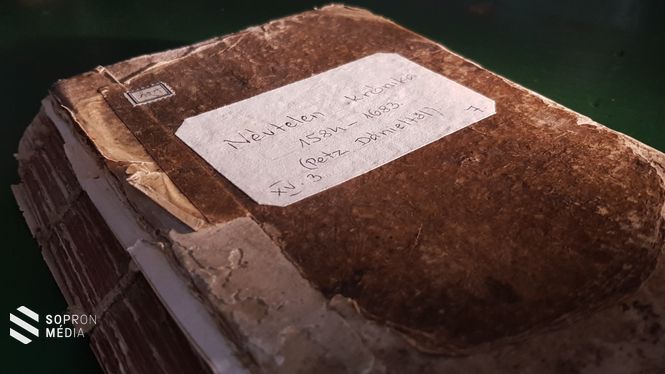 Névtelen krónika
1584 – 1683.
(Petz Dánieltől)
XV. 3
7
SOPRON
MÉDIA